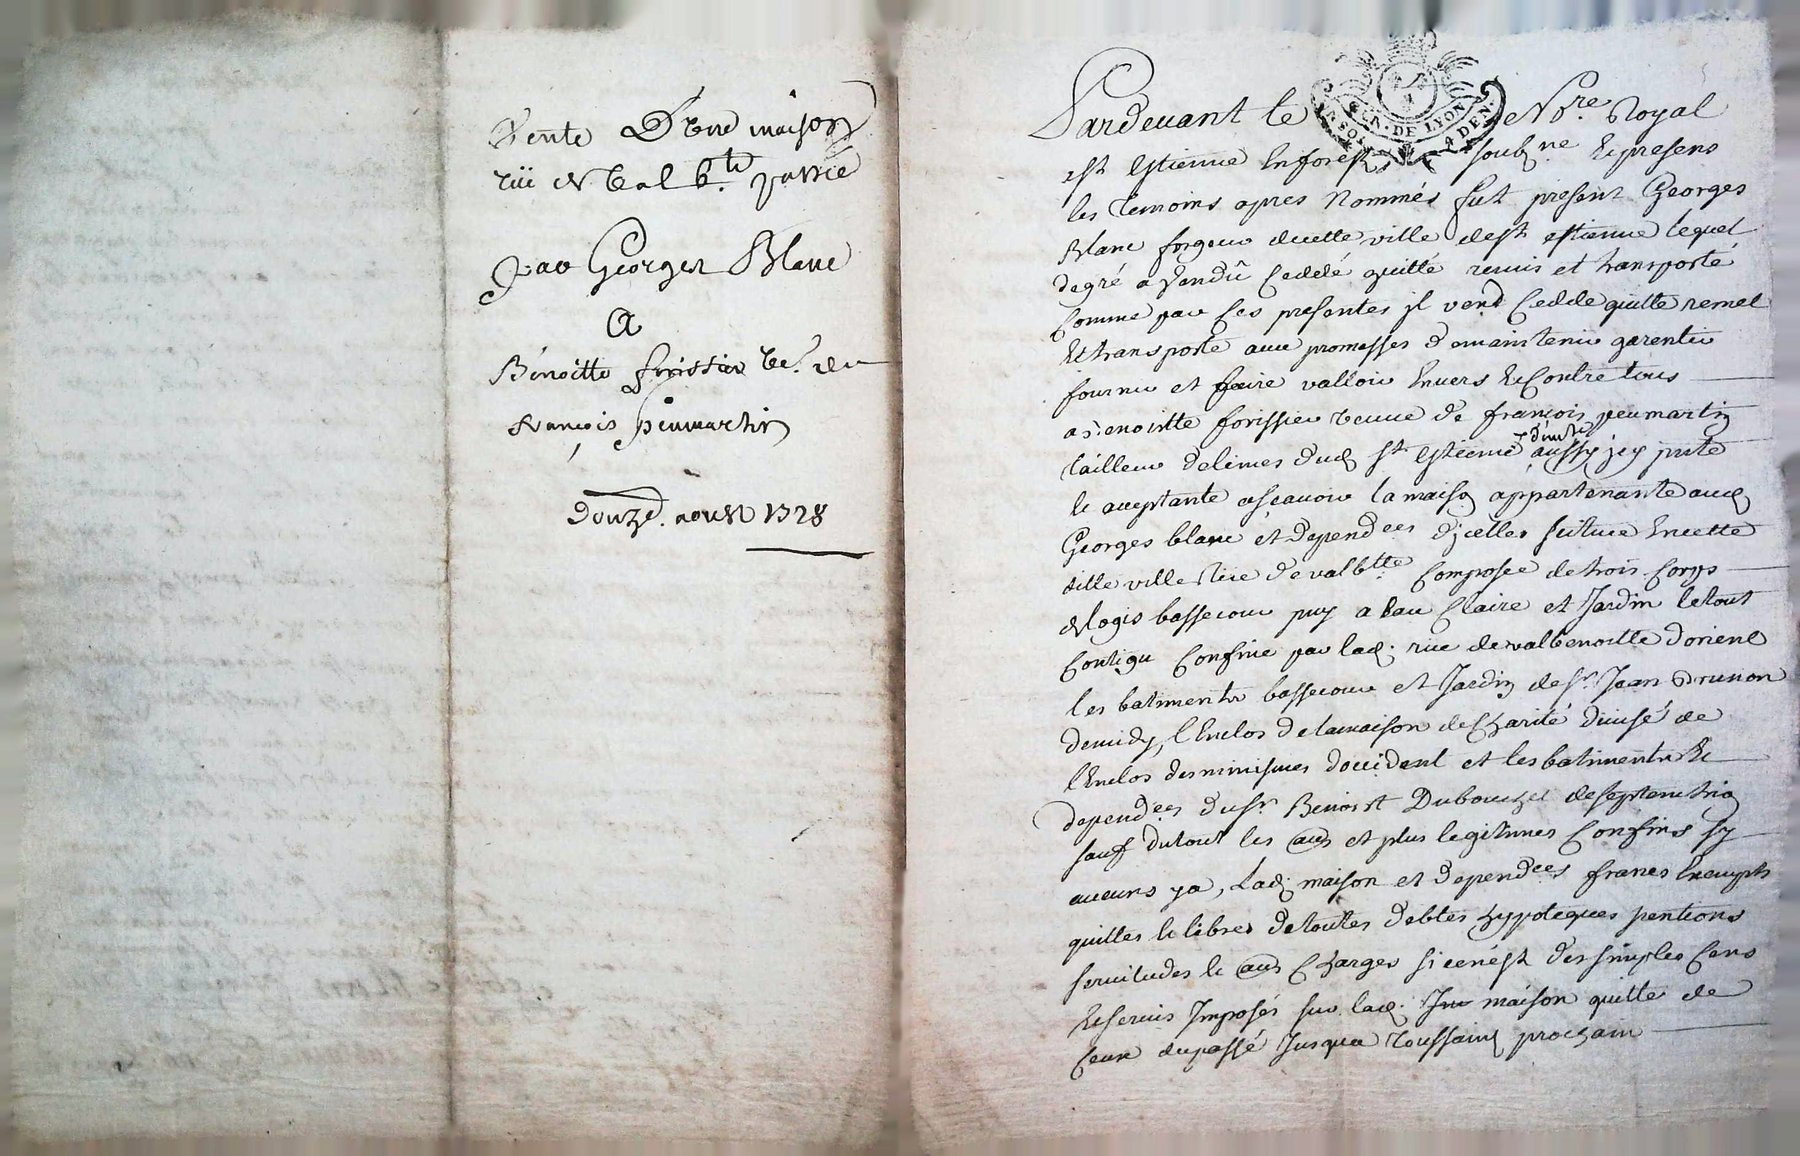 Vente D'une maison
rüe de Val b.te passée
par Georges Blanc
A
Benoitte forissier ve. de
françois peumartin
Douze. aoust 1728
GEN. DE LYON
Pardevant le Nre. Royal
est Estienne En forest soubne. Et presens
les temoins apres Nommés fut present Georges
Blanc forgeur decette ville de st estienne lequel
degré a Vendû Ceddé quitté remis et transporté
Comme par Ces presentes jl vend Cedde quitte remet
Et transporte avec promesses de maintenir garentir
fournir et faire valloir Envers Et Contre tous
a Benoistte forissier veuve de françois peumartin
tailleur delimes dud st Estienne aussy jcy pnte
Et aceptante asscavoir la maison appartenante aud
Georges blanc et dependces djcelles scittuée En cette
ditte ville Rüe de valbtte Composée de trois Corps
de logis bassecour puy a Eau Claire et Jardin le tout
Contigu Confiné par lad. rüe de valbenoitte dorient
les batiments bassecour et Jardin de sr. Jean Drunon
demidy, l'Enclos de la maison de Charité divisé de
l'Enclos des minimes doccident et les batiments Et
dependces du sr Benoist Dubouchet de septentrion
sauf dutout les aus et plus legitimes Confins sy
aucuns ya, Lad. maison et dependces francs Exempts
quittes Et libres de touttes debtes hypoteques pentions
servitudes Et aus Charges si cenést des simples Cens
Et servis Jmposés sur lad. maison quitte de
Ceux du passé Jusqua Toussaint prochain